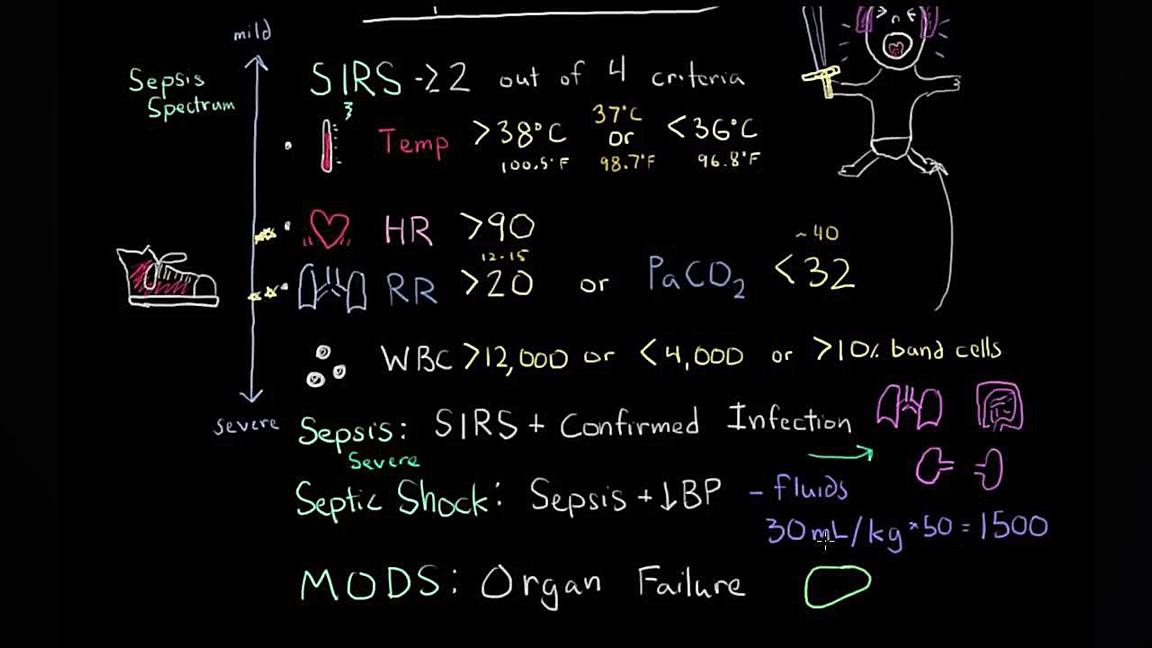 mild
Sepsis
Spectrum
SIRS → ≥2 out of 4 criteria
3
Temp >38°C 37°C or <36°C
100.5°F 98.7°F 96.8°F
HR >90
12-15 ~40
RR >20 or PaCO2 <32
WBC >12,000 or <4,000 or >10% band cells
severe
Sepsis: SIRS + Confirmed Infection
Severe
Septic Shock: Sepsis + ↓BP - fluids
30mL/kg × 50 = 1500
MODS: Organ Failure